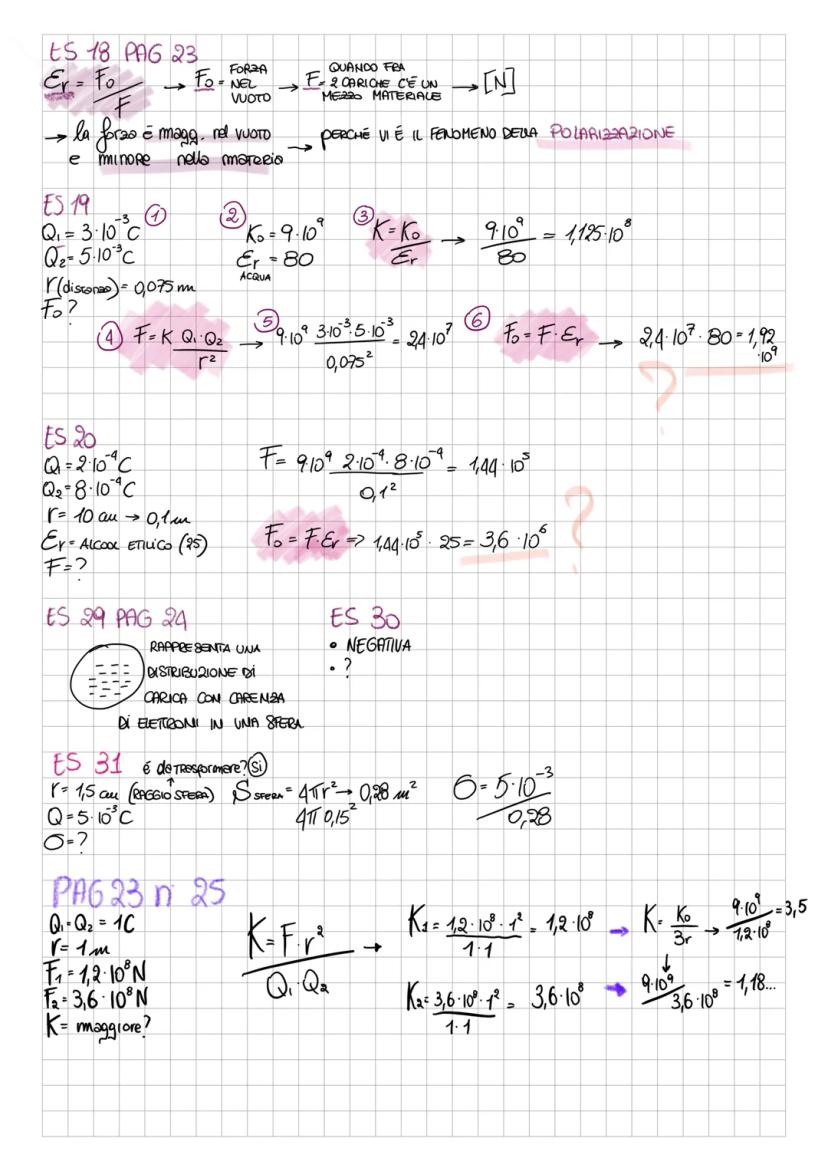 ES 18 PAG 23
Er = F0/F → F0 = FORZA NEL VUOTO → F = QUANDO FRA 2 CARICHE C'È UN MEZZO MATERIALE → [N]
→ la forza è magg. nel VUOTO e MINORE nella materia → PERCHÉ VI È IL FENOMENO DELLA POLARIZZAZIONE
ES 19
Q1 = 3·10⁻³ C
Q2 = 5·10⁻³ C
r (distanza) = 0,075 m
F0?
① ② K0 = 9·10⁹
Er = 80
ACQUA
③ K = K0/Er → 9·10⁹/80 = 1,125·10⁸
④ F = K Q1·Q2/r² → ⑤ 9·10⁹ 3·10⁻³·5·10⁻³/0,075² = 2,4·10⁷ ⑥ F0 = F·Er → 2,4·10⁷·80 = 1,92·10⁹
?
ES 20
Q1 = 2·10⁻⁴ C
Q2 = 8·10⁻⁴ C
r = 10 cm → 0,1 m
Er = ALCOOL ETILICO (25)
F = ?
F = 9·10⁹ 2·10⁻⁴·8·10⁻⁴/0,1² = 1,44·10⁵
F0 = F·Er => 1,44·10⁵·25 = 3,6·10⁶ ?
ES 29 PAG 24
RAPPRESENTA UNA
DISTRIBUZIONE DI
CARICA CON CARENZA
DI ELETTRONI IN UNA SFERA
ES 30
• NEGATIVA
• ?
ES 31 è da TRASFORMARE? Si
r = 1,5 cm (RAGGIO SFERA) S SFERA = 4πr² → 0,28 m²
Q = 5·10⁻³ C 4π 0,15²
σ = ?
σ = 5·10⁻³/0,28
PAG 23 n 25
Q1 = Q2 = 1C
r = 1 m
F1 = 1,2·10⁸ N
F2 = 3,6·10⁸ N
K = maggiore?
K = F·r²/Q1·Q2 →
K1 = 1,2·10⁸·1²/1·1 = 1,2·10⁸ → K = K0/3r → 9·10⁹/1,2·10⁸ = 3,5
K2 = 3,6·10⁸·1²/1·1 = 3,6·10⁸ → 9·10⁹/3,6·10⁸ = 1,18...